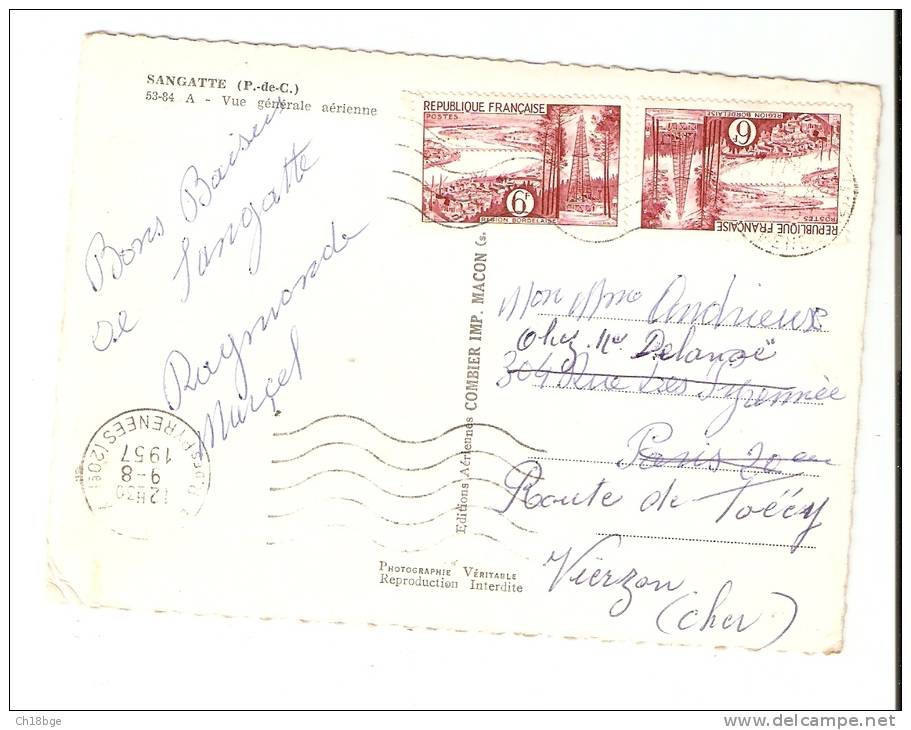 SANGATTE (P.-de-C.)
53-84 A - Vue générale aérienne
Bons Baisers
de Sangatte
Raymonde
Marcel
REPUBLIQUE FRANÇAISE
POSTES
6F
REGION BORDELAISE
REPUBLIQUE FRANÇAISE
POSTES
6F
REGION BORDELAISE
Editions Aériennes COMBIER IMP. MACON (S.
Mon Mme Andrieux
Chez Mr Delangé
304 Rue des Pyrennée
Paris 20
Route de
Vierzon
(Cher)
PYRENEES (20E)
12H30
9-8
1957
PHOTOGRAPHIE VÉRITABLE
Reproduction Interdite
Ch18bge
delcampe.net